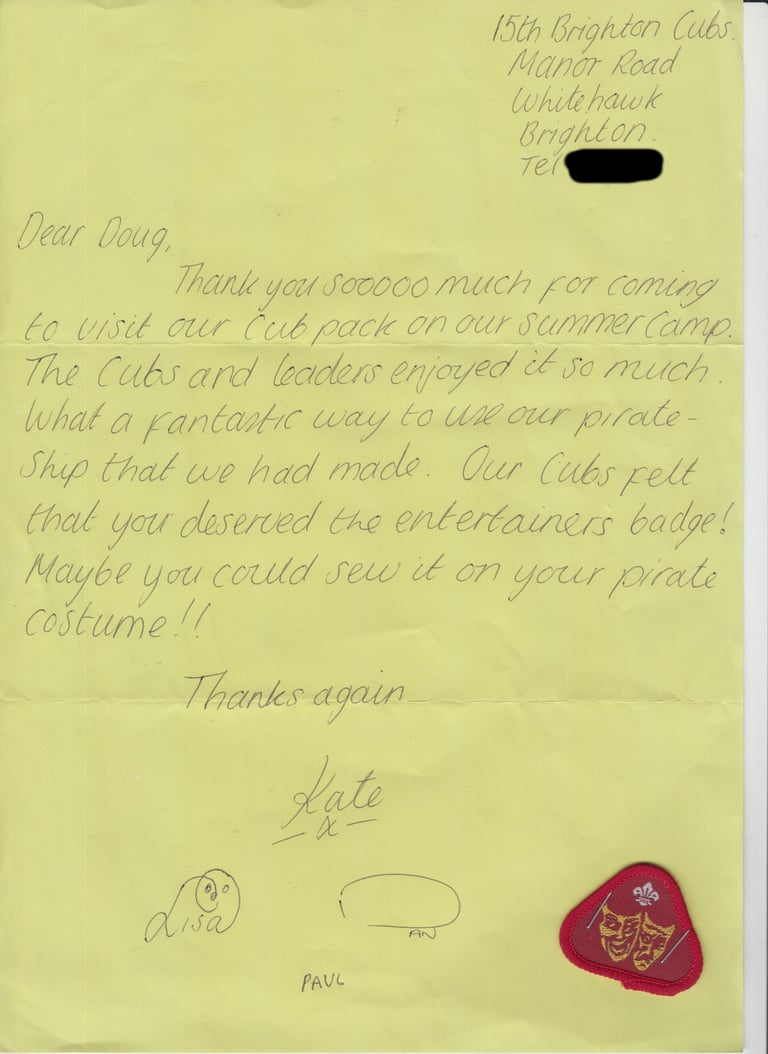 15th Brighton Cubs.
Manor Road
Whitehawk
Brighton.
Tel
Dear Doug,
Thank you sooooo much for coming
to visit our Cub pack on our Summer Camp.
The Cubs and leaders enjoyed it so much.
What a fantastic way to use our pirate-
ship that we had made. Our Cubs felt
that you deserved the entertainers badge!
Maybe you could sew it on your pirate
costume!!
Thanks again
Kate
x
Lisa
DAN
PAUL